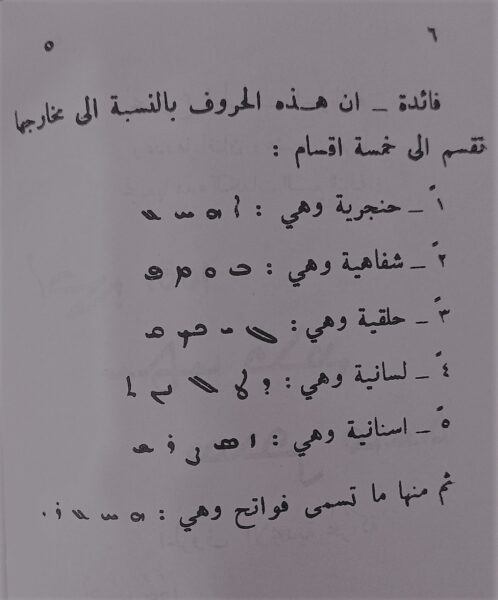 ٦ ٥
فائدة – ان هذه الحروف بالنسبة الى مخارجها
تقسم الى خمسة اقسام :
١ً – حنجرية وهي : ܐ ܗ ܚ ܥ
٢ً – شفاهية وهي : ܒ ܘ ܡ ܦ
٣ً – حلقية وهي : ܓ ܝ ܟ ܩ
٤ً – لسانية وهي : ܕ ܛ ܠ ܢ ܬ
٥ً – اسنانية وهي : ܙ ܣ ܨ ܪ ܫ
ثم منها ما تسمى فواتح وهي : ܗ ܚ ܥ ܪ .